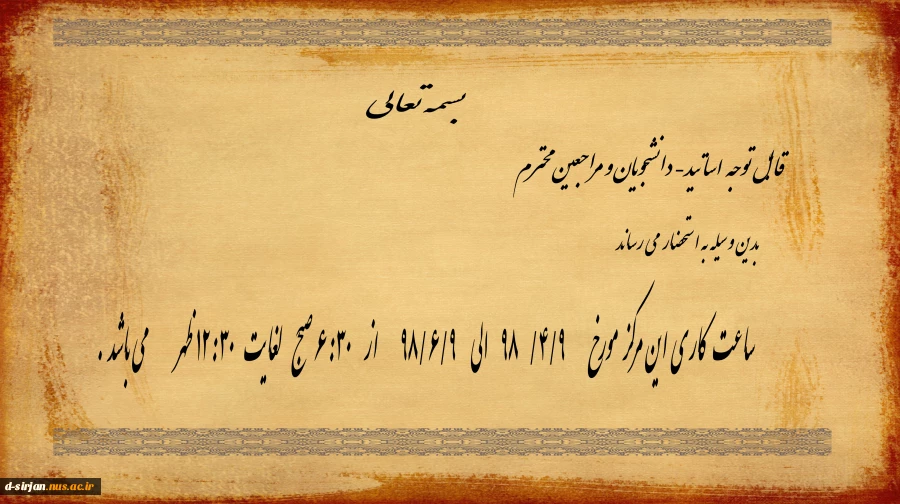 بسمه تعالی
قابل توجه اساتید - دانشجویان و مراجعین محترم
بدین وسیله به استحضار می رساند
ساعت کاری این مرکز مورخ ۹۸/۴/۹ الی ۹۸/۶/۹ از ۶:۳۰ صبح لغایت ۱۲:۳۰ ظهر می باشد .
d-sirjan.nus.ac.ir